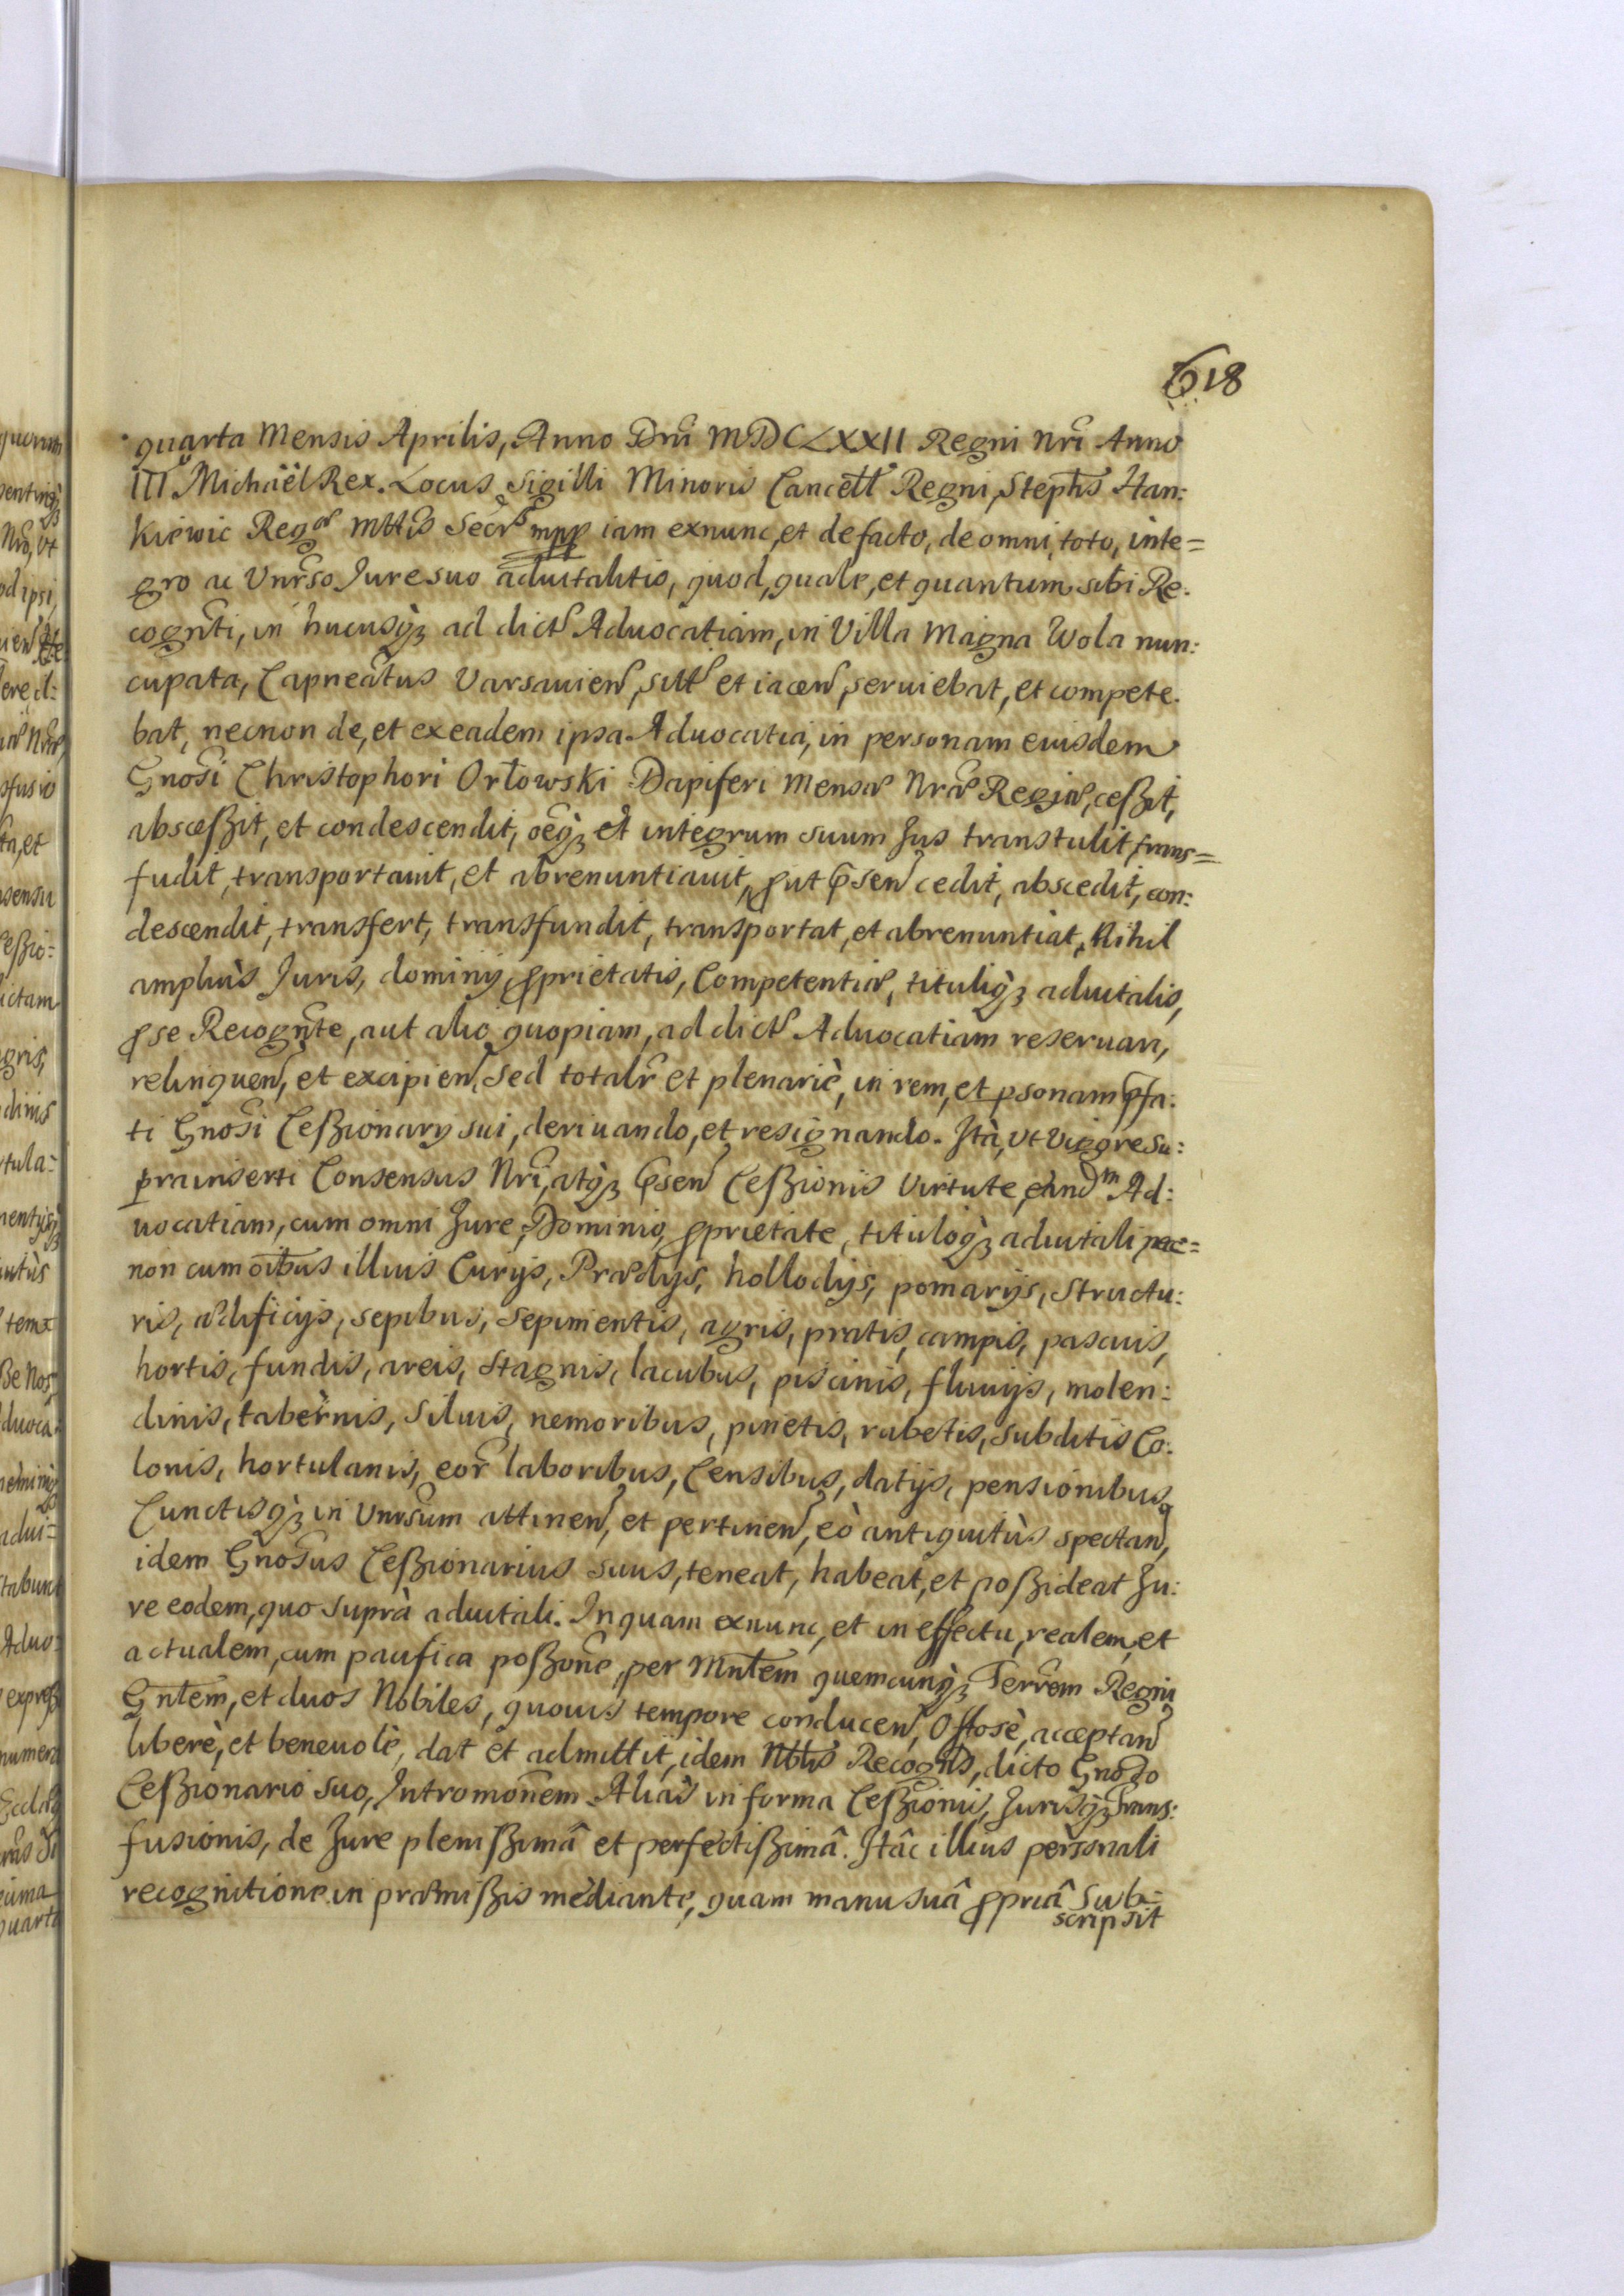 618
quarta Mensis Aprilis, Anno Dni MDCLXXII Regni Nri Anno
IIIº Michäel Rex. Locus Sigilli Minoris Cancell Regni, Stephs Han:
kiewic Regæ Mttis Secrs mpp iam exnunc, et de facto, de omni, toto, inte=
gro ac Vnrso Jure suo aduitalitio, quod, quale, et quantum sibi Re:
cognti, in hucusqȝ ad dict Aduocatiam, in Villa Magna Wola nun:
cupata, Capneatus Varsauien, sitt et iacen, seruiebat, et compete.
bat, necnon de, et ex eadem ipsa Aduocatia, in personam eiusdem
Gnosi Christophori Orłowski Dapiferi Mensæ Nræ Regiæ, ceßit,
absceßit, et condescendit, oeqȝ et integrum suum Jus transtulit, trans=
fudit, transportauit, et abrenuntiauit, put psen cedit, abscedit, con:
descendit, transfert, transfundit, transportat, et abrenuntiat, Nihil
ampliùs Juris, dominij, pprietatis, Competentiæ, tituliqȝ aduitalis,
p se Recognte, aut alio quopiam, ad dict Aduocatiam reseruan,
relinquen, et excipien, Sed totalr et plenariè, in rem, et psonam pfa:
ti Gnosi Ceßionarij sui, deriuando, et resignando. Ità, Vt Vigore Su:
prainserti Consensus Nri, atqȝ psen Ceßionis Virtute, eand^m Ad:
uocatiam, cum omni Jure, Dominio, pprietate, tituloqȝ aduitali nec=
non cum oibus illius Curijs, Prædijs, hollodijs, pomarijs, Structu:
ris, ædificijs, sepibus, Sepimentis, agris, pratis, campis, pascuis,
hortis, fundis, areis, Stagnis, lacubus, piscinis, fluuijs, molen:
dinis, tabernis, Siluis, nemoribus, pinetis, rubetis, Subditis Co:
lonis, hortulanis, eor laboribus, Censibus, datijs, pensionibus
Cunctisqȝ in Vnrsum attinen, et pertinen, eò antiquitùs spectan,
idem Gnosus Ceßionarius suus, teneat, habeat, et poßideat Ju:
re eodem, quo suprà aduitali. In quam exnunc, et in effectu, realem, et
actualem, cum pacifica poßone, per Mntem quemcunqȝ Terrem Regni
Gntem, et duos Nobiles, quouis tempore conducen, Offosè, acceptan
liberè, et beneuolè, dat et admittit, idem Nblis Recogns, dicto Gnoso
Ceßionario Suo, Intromonem. Aliàs in forma Ceßionis, Jurisqȝ Trans:
fusionis, de Jure plenißimâ et perfectißimâ. Hâc illius personali
recognitione in præmißis mediante, quam manu suâ ppriâ Sub=
scripsit